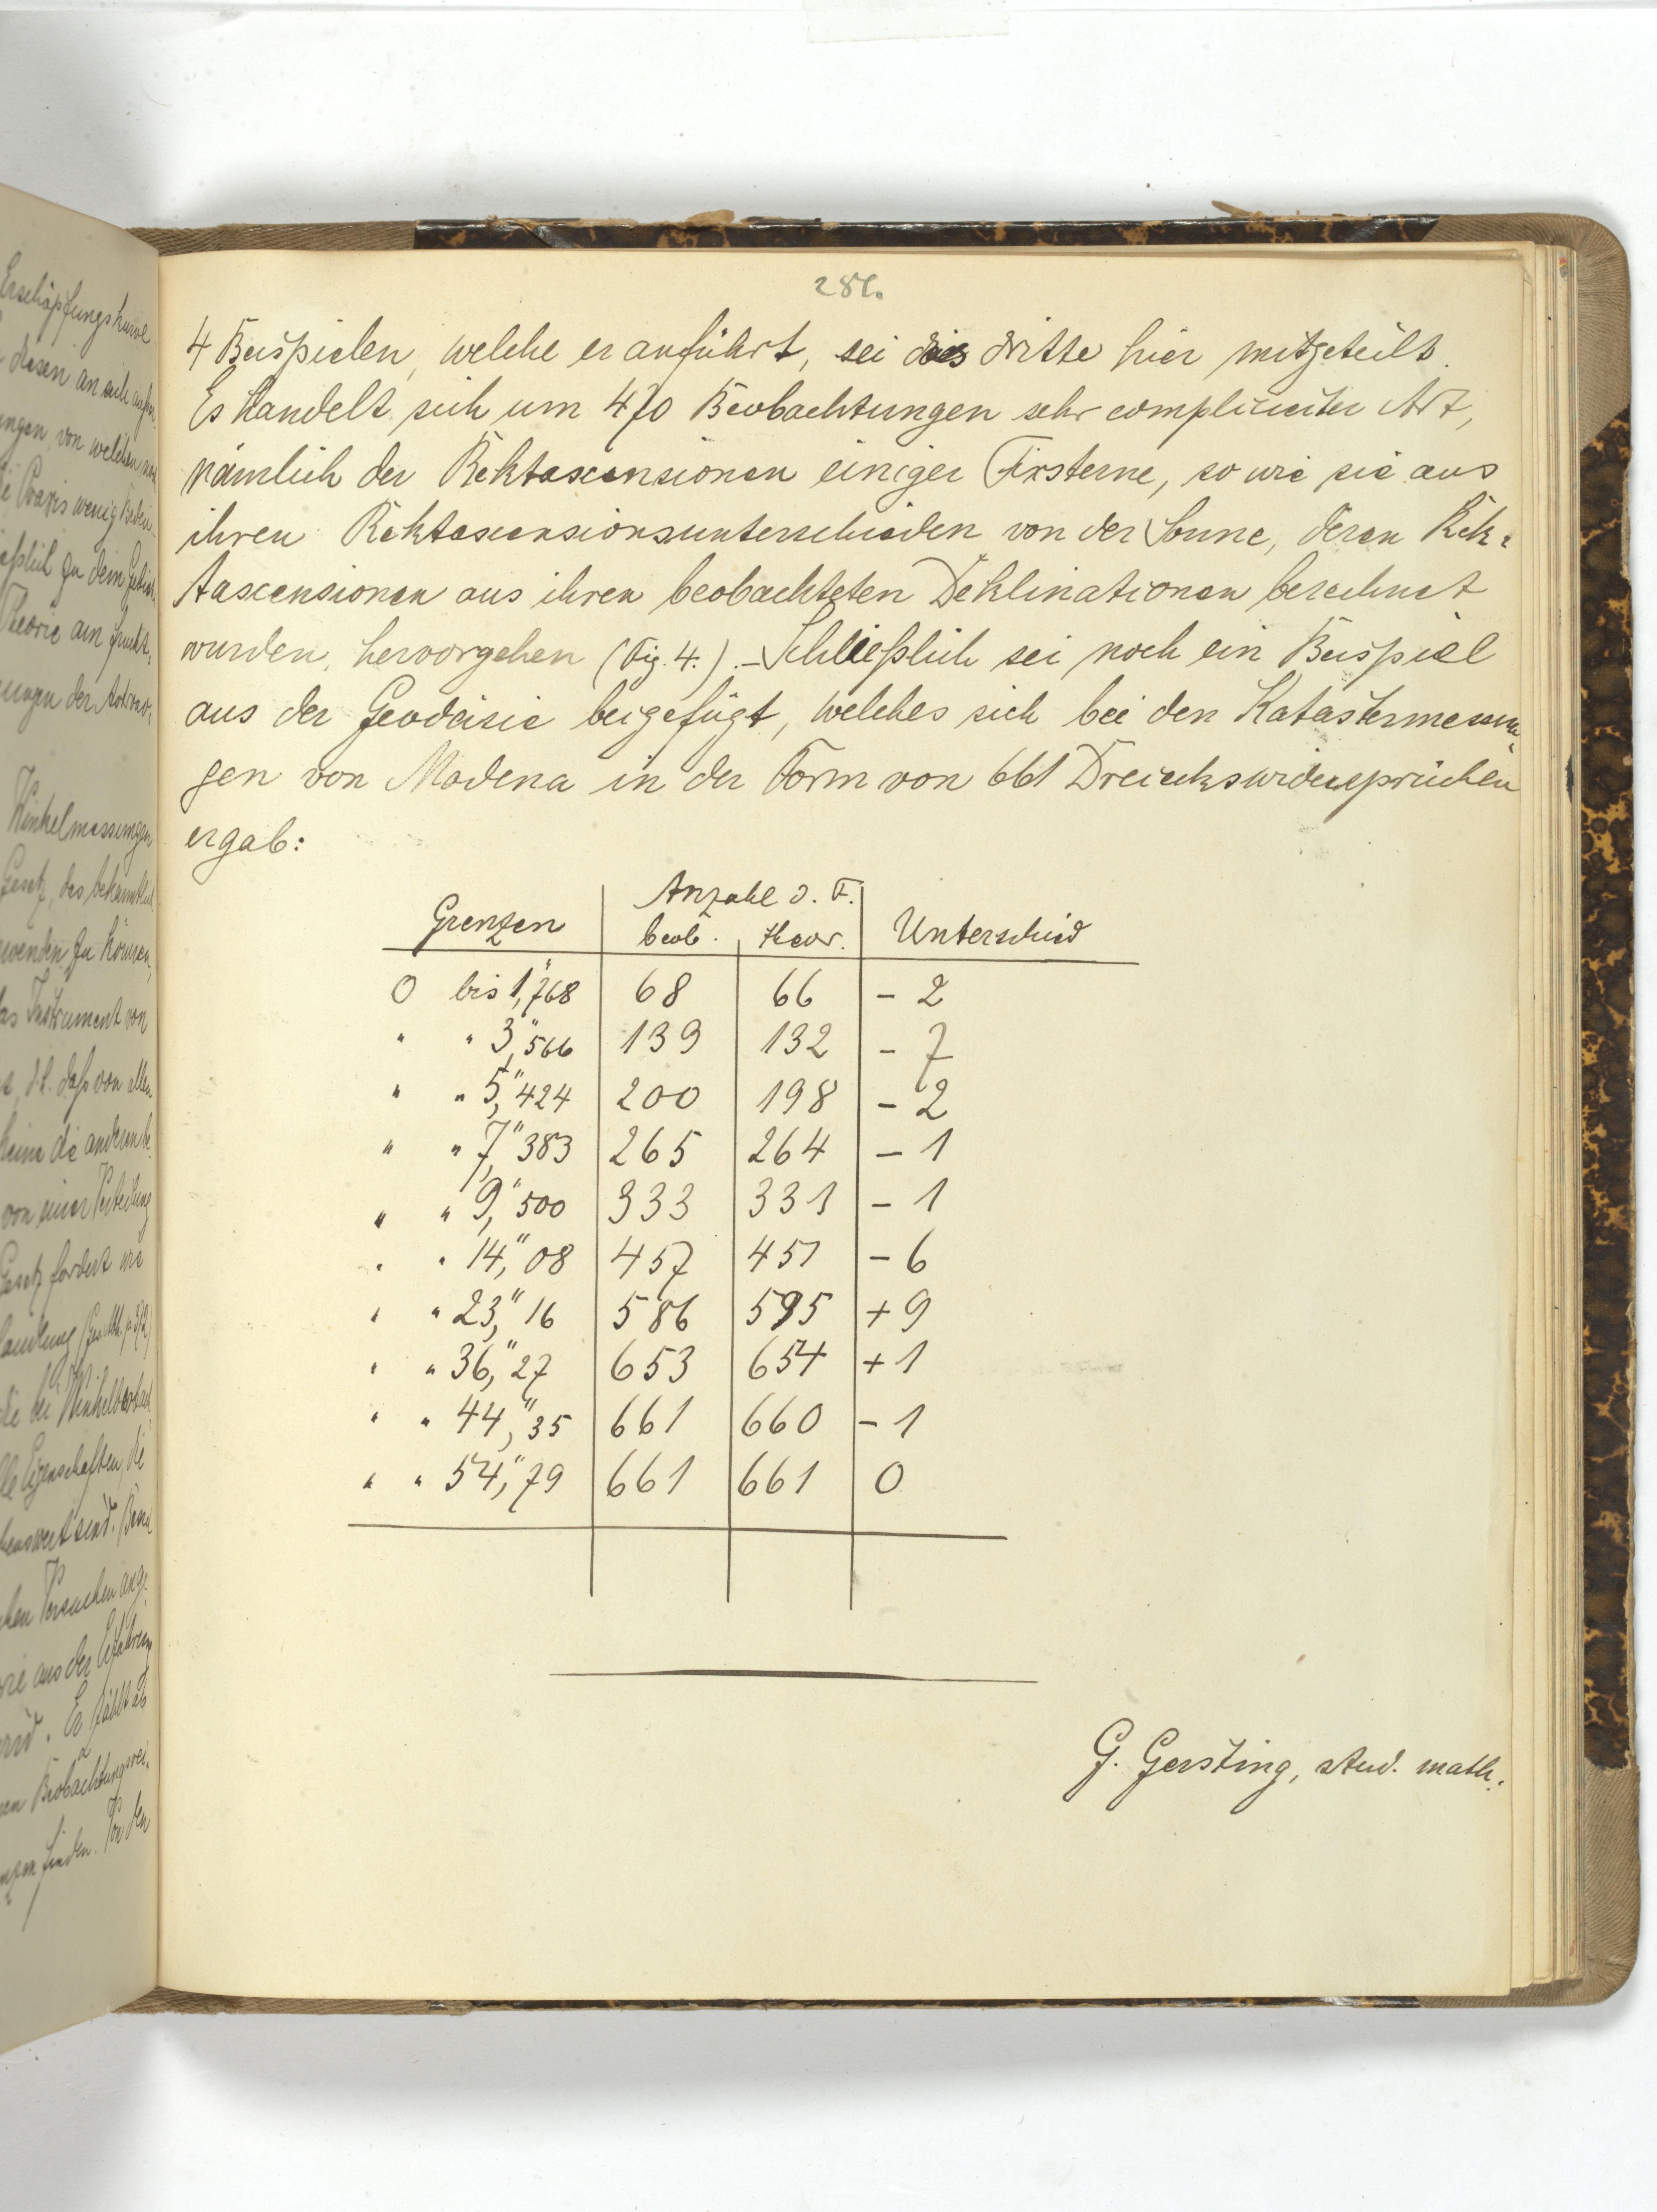 Erschöpfungskurve
diesen an sich
ungen, von welchen
Praxis wenig
zu dem
Theorie am
ungen der
Winkelmessungen
Gesetz, das bekanntlich
wenden zu können,
Instrument von
d.h. daß von allen
keine die anderen
von einer Verteilung
Gesetz fordert wie
die bei
Eigenschaften, die
sind.
Versuchen
wie aus der Erfahrung
wird. Er zählt ab
Beobachtungsrei-
finden. Von den
281.
4 Beispielen, welche er anführt, sei das dritte hier mitgeteilt.
Es handelt sich um 470 Beobachtungen sehr complicirter Art,
nämlich der Rektascensionen einiger Fixsterne, so wie sie aus
ihren Rektascensionsunterschieden von der Sonne, deren Rek-
tascensionen aus ihren beobachteten Deklinationen berechnet
wurden, hervorgehen (Fig. 4.). – Schließlich sei noch ein Beispiel
aus der Geodäsie beigefügt, welches sich bei den Katastermessun-
gen von Modena in der Form von 661 Dreieckswidersprüchen
ergab:
Anzahl d. F.
Grenzen beob. theor. Unterschied
0 bis 1,"768 68 66 - 2
" " 3,"566 139 132 - 7
" " 5,"424 200 198 - 2
" " 7,"383 265 264 - 1
" " 9,"500 333 331 - 1
" " 14,"08 457 451 - 6
" " 23,"16 586 595 + 9
" " 36,"27 653 654 + 1
" " 44,"35 661 660 - 1
" " 54,"79 661 661 0
G. Gersting, stud. math.